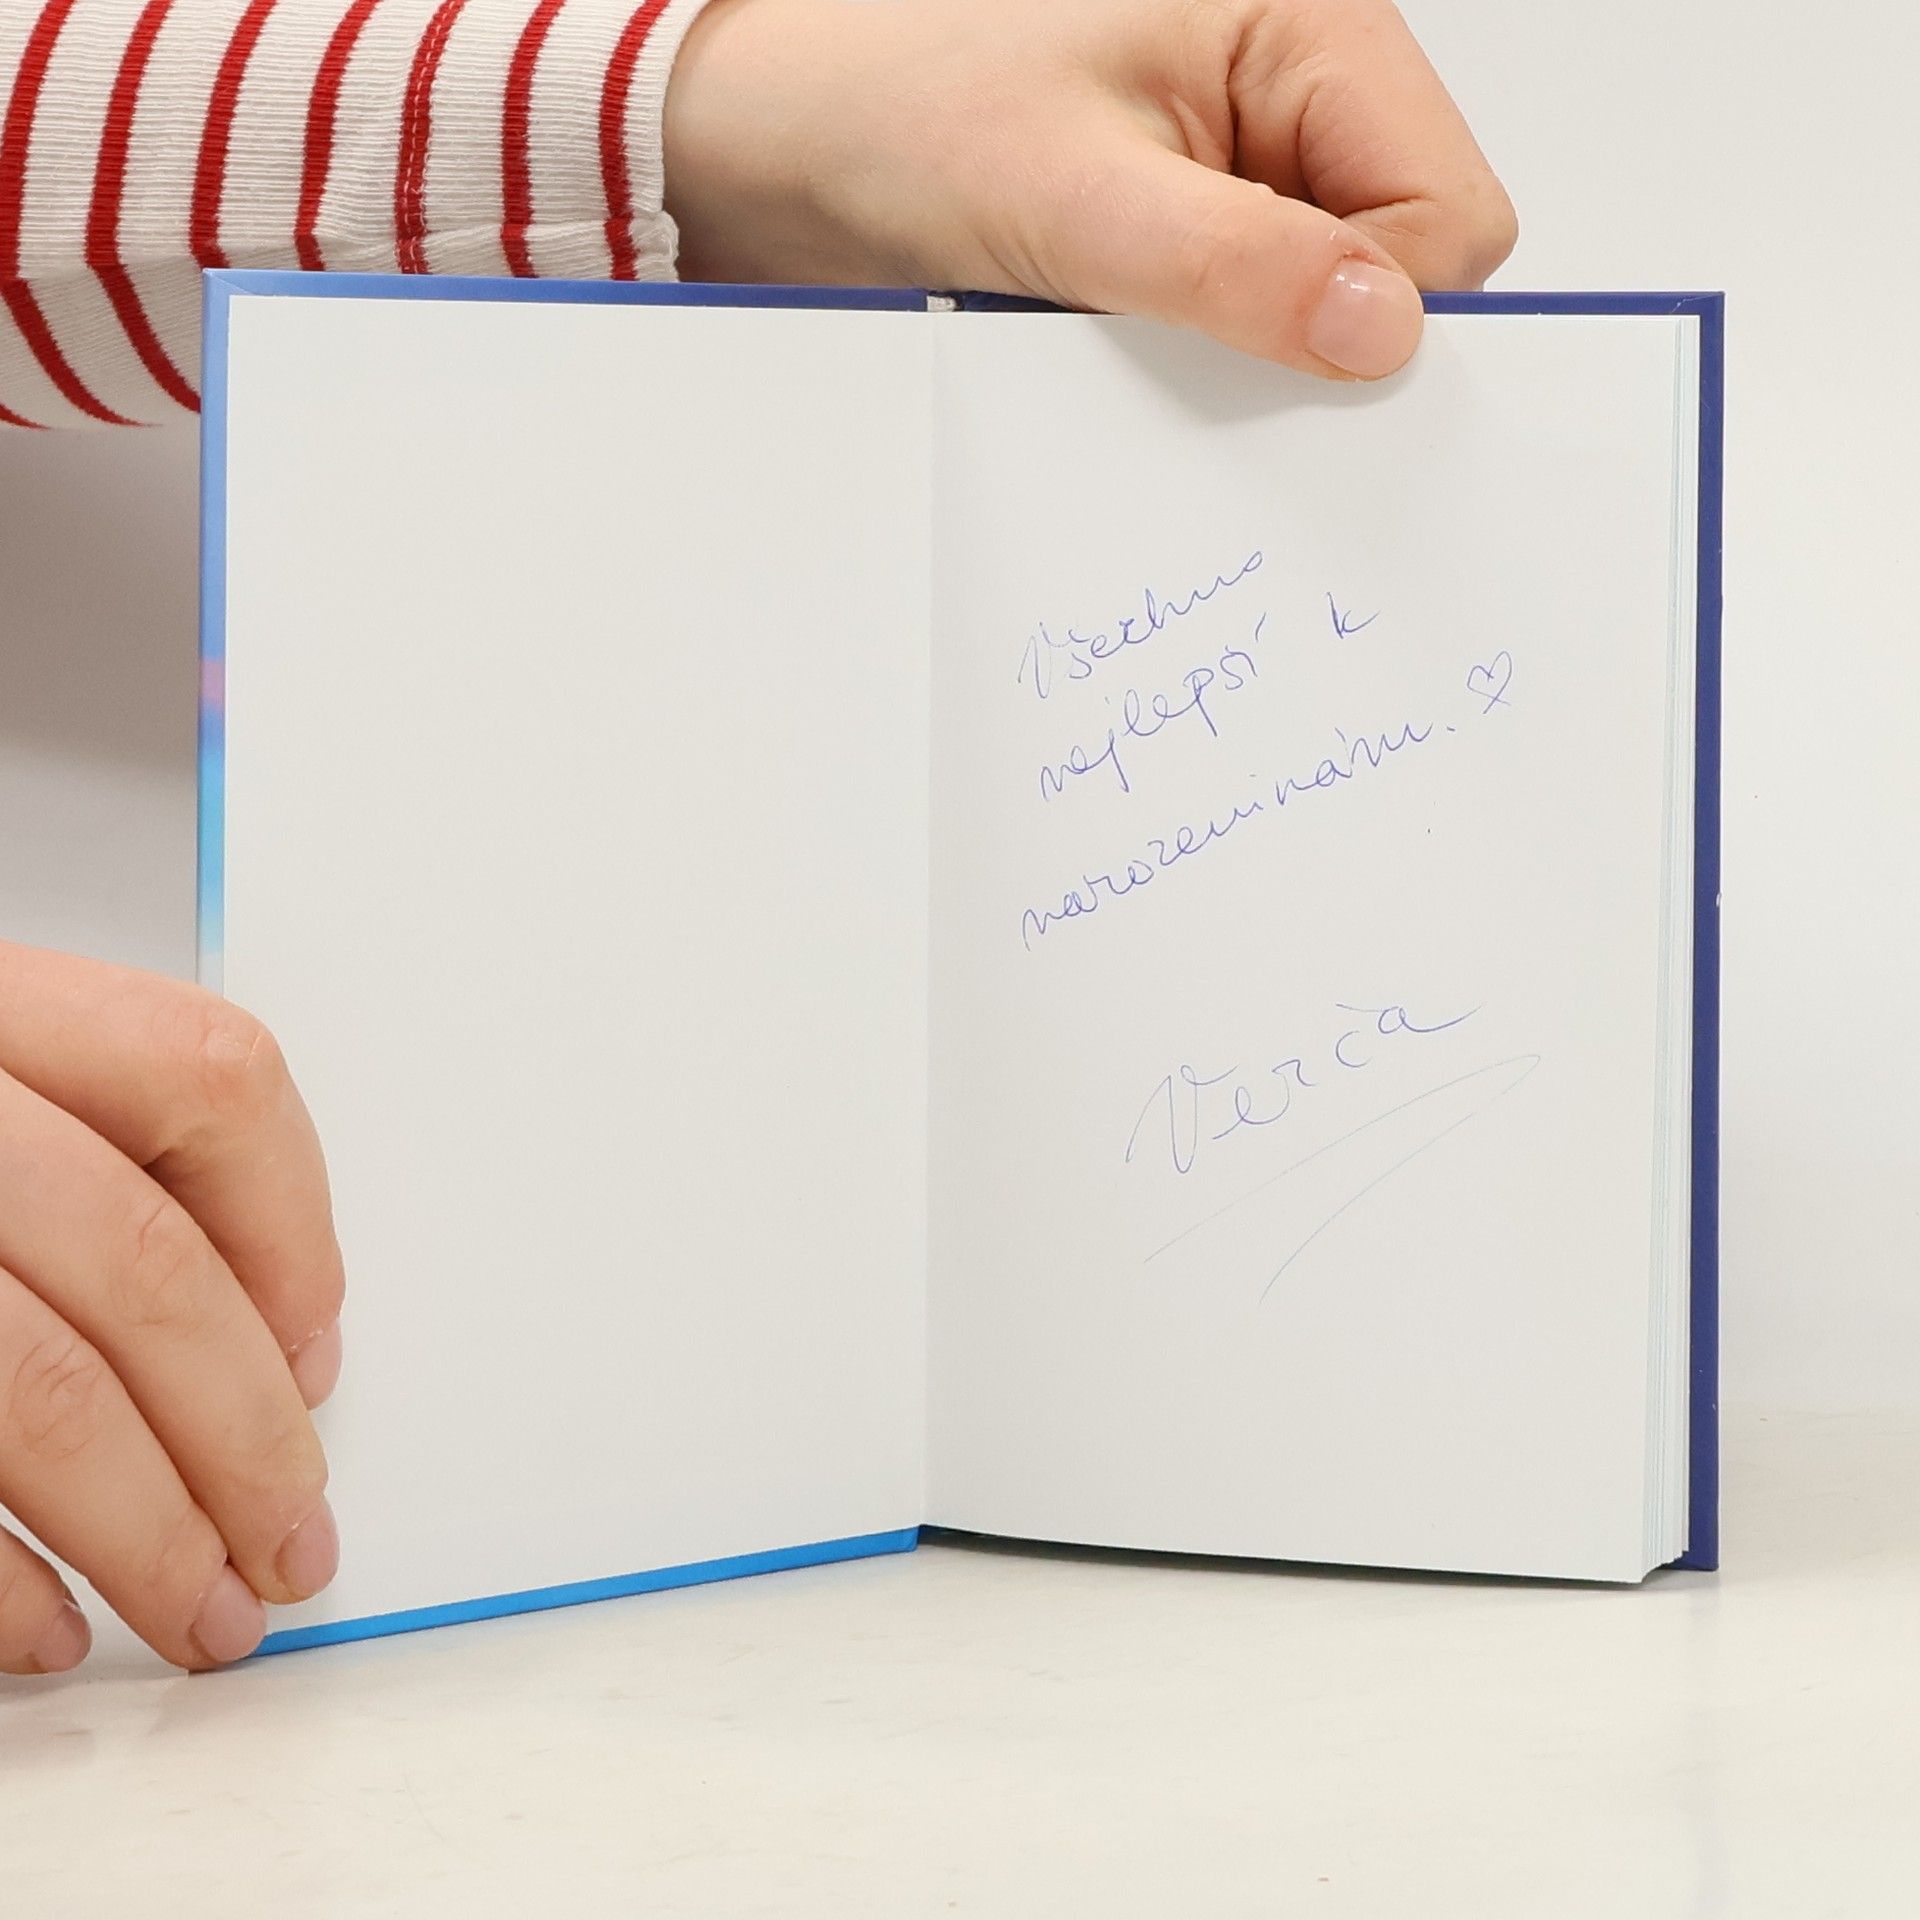 Všechno
nejlepší k
narozeninám. ♡
Verča